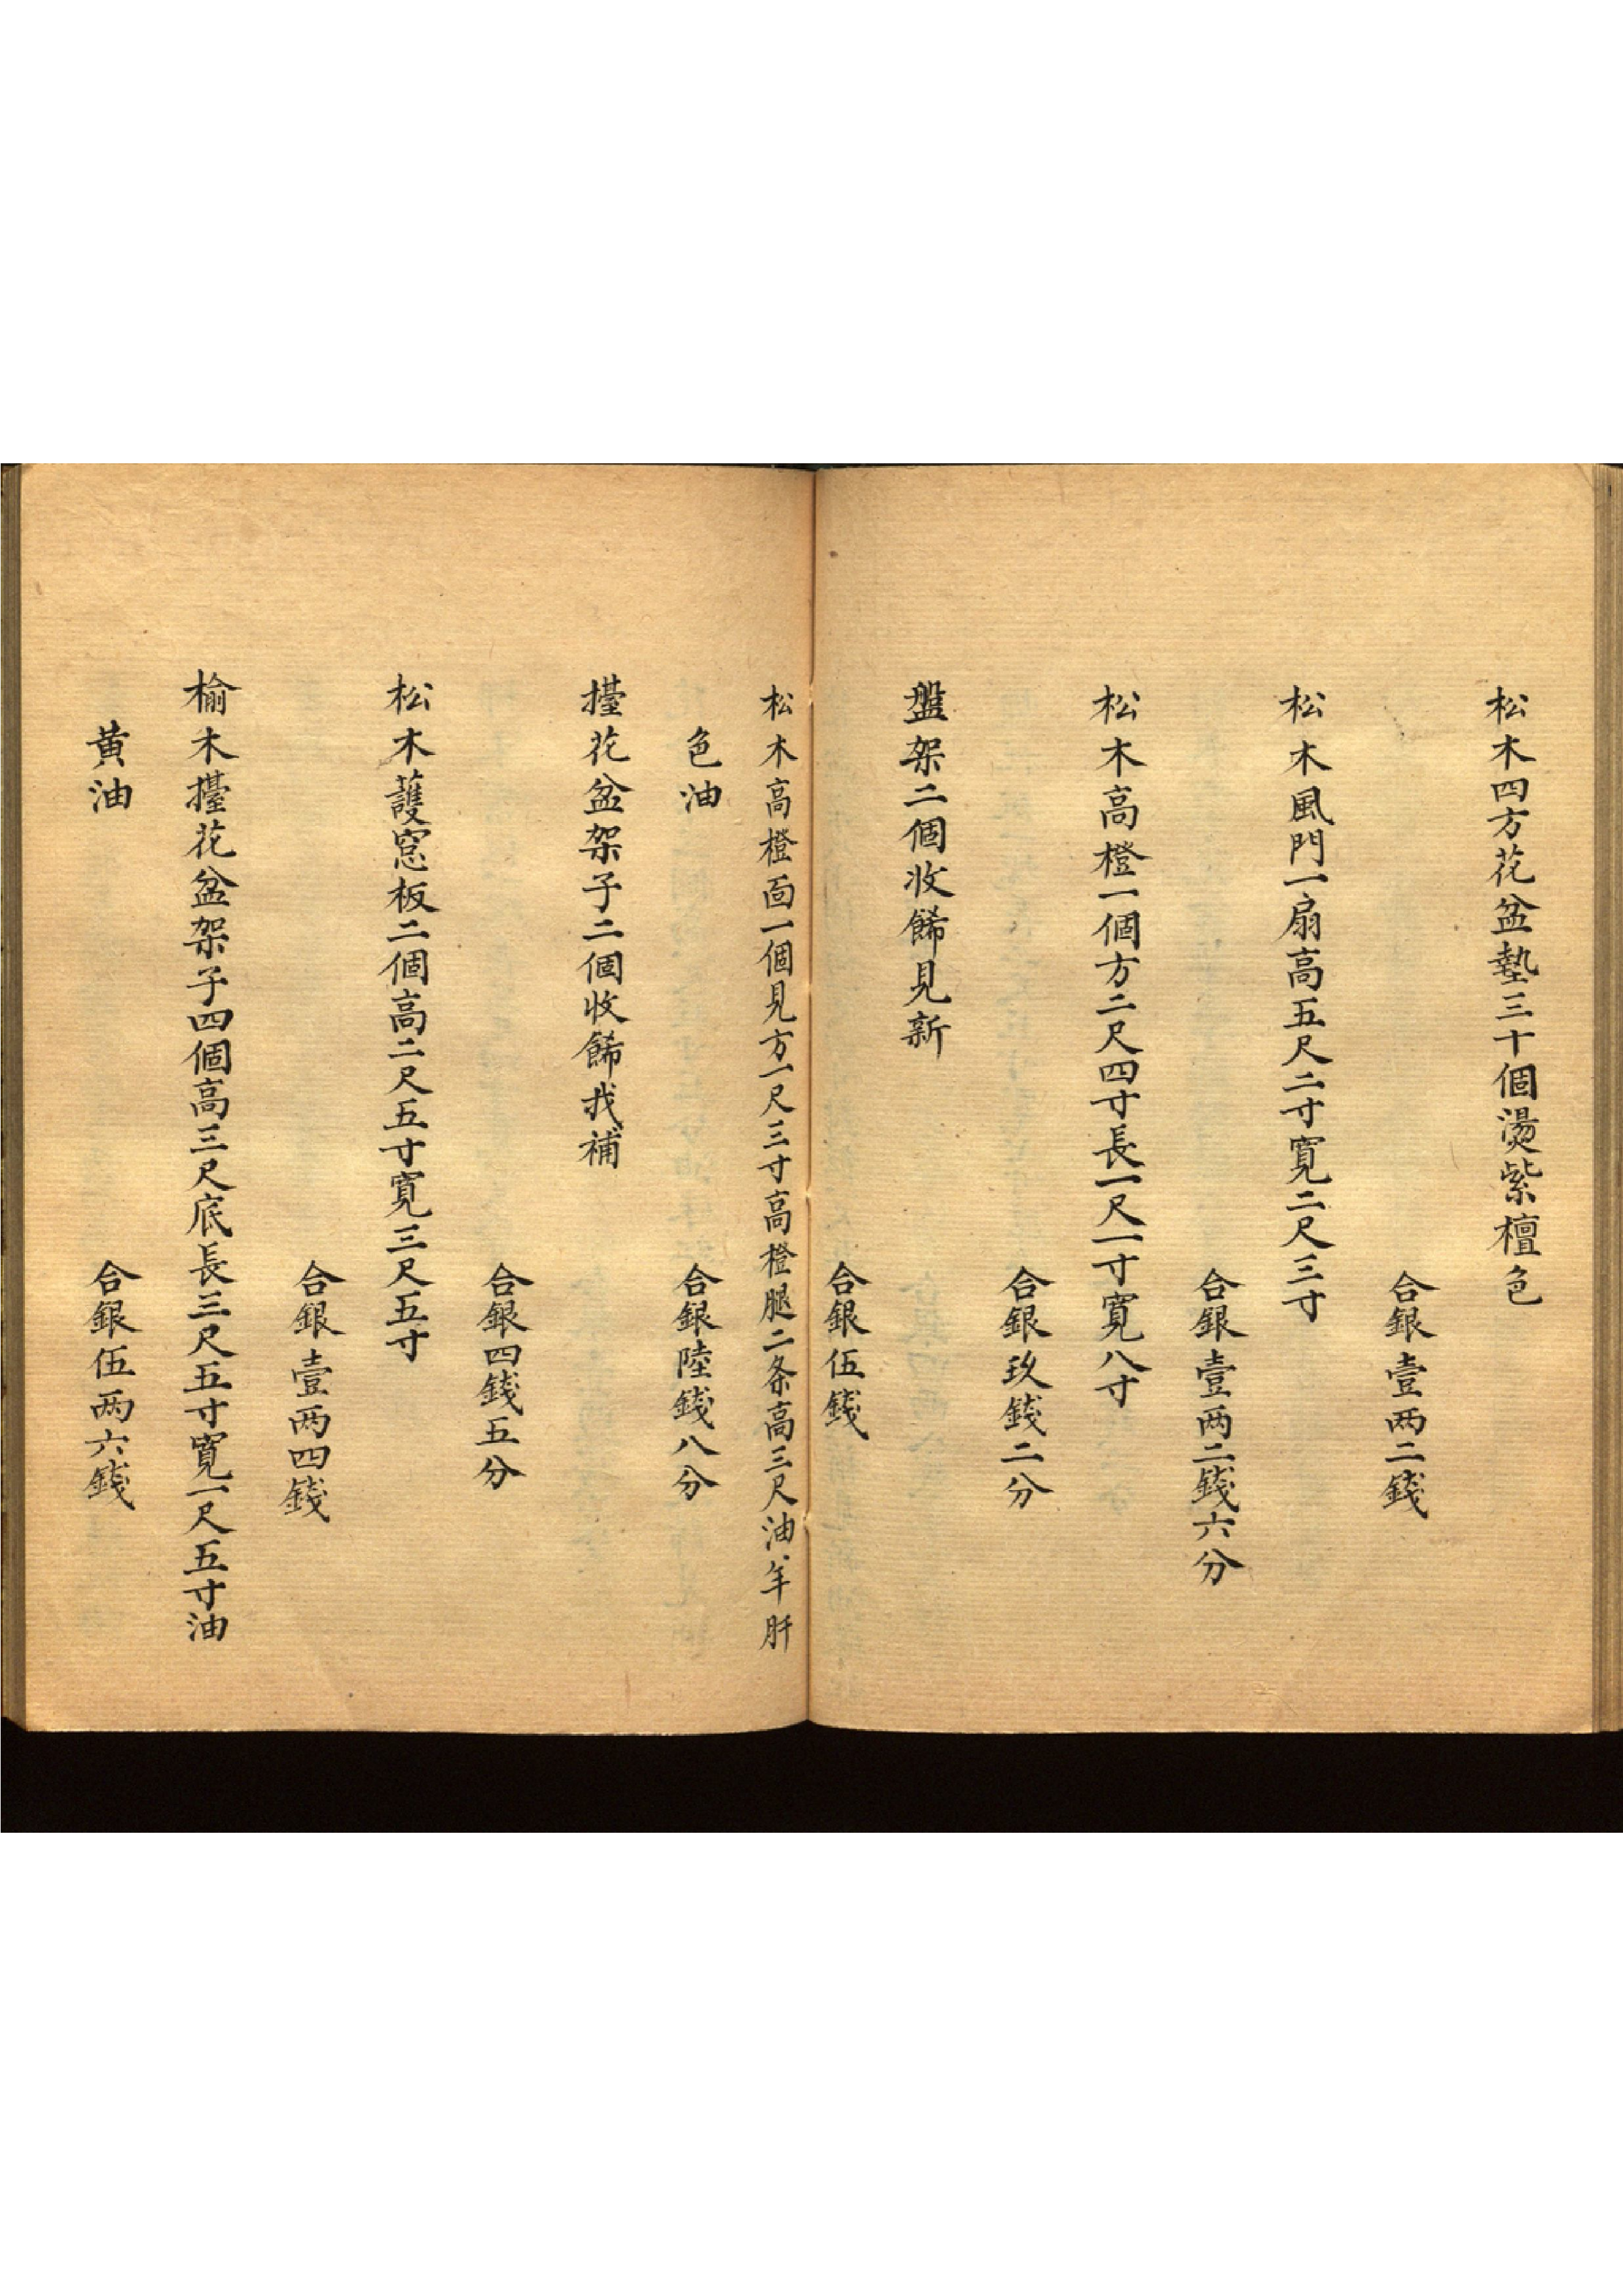 松木四方花盆墊三十個燙紫檀色
合銀壹两二錢
松木風門一扇高五尺二寸寬二尺三寸
合銀壹两二錢六分
松木高橙一個方二尺四寸長一尺一寸寬八寸
合銀玖錢二分
盤架二個收餙見新
合銀伍錢
松木高橙面一個見方一尺三寸高橙腿二条高三尺油羊肝
色油
合銀陸錢八分
擡花盆架子二個收餙找補
合銀四錢五分
松木護窓板二個高二尺五寸寬三尺五寸
合銀壹两四錢
榆木擡花盆架子四個高三尺底長三尺五寸寬一尺五寸油
黃油
合銀伍两六錢